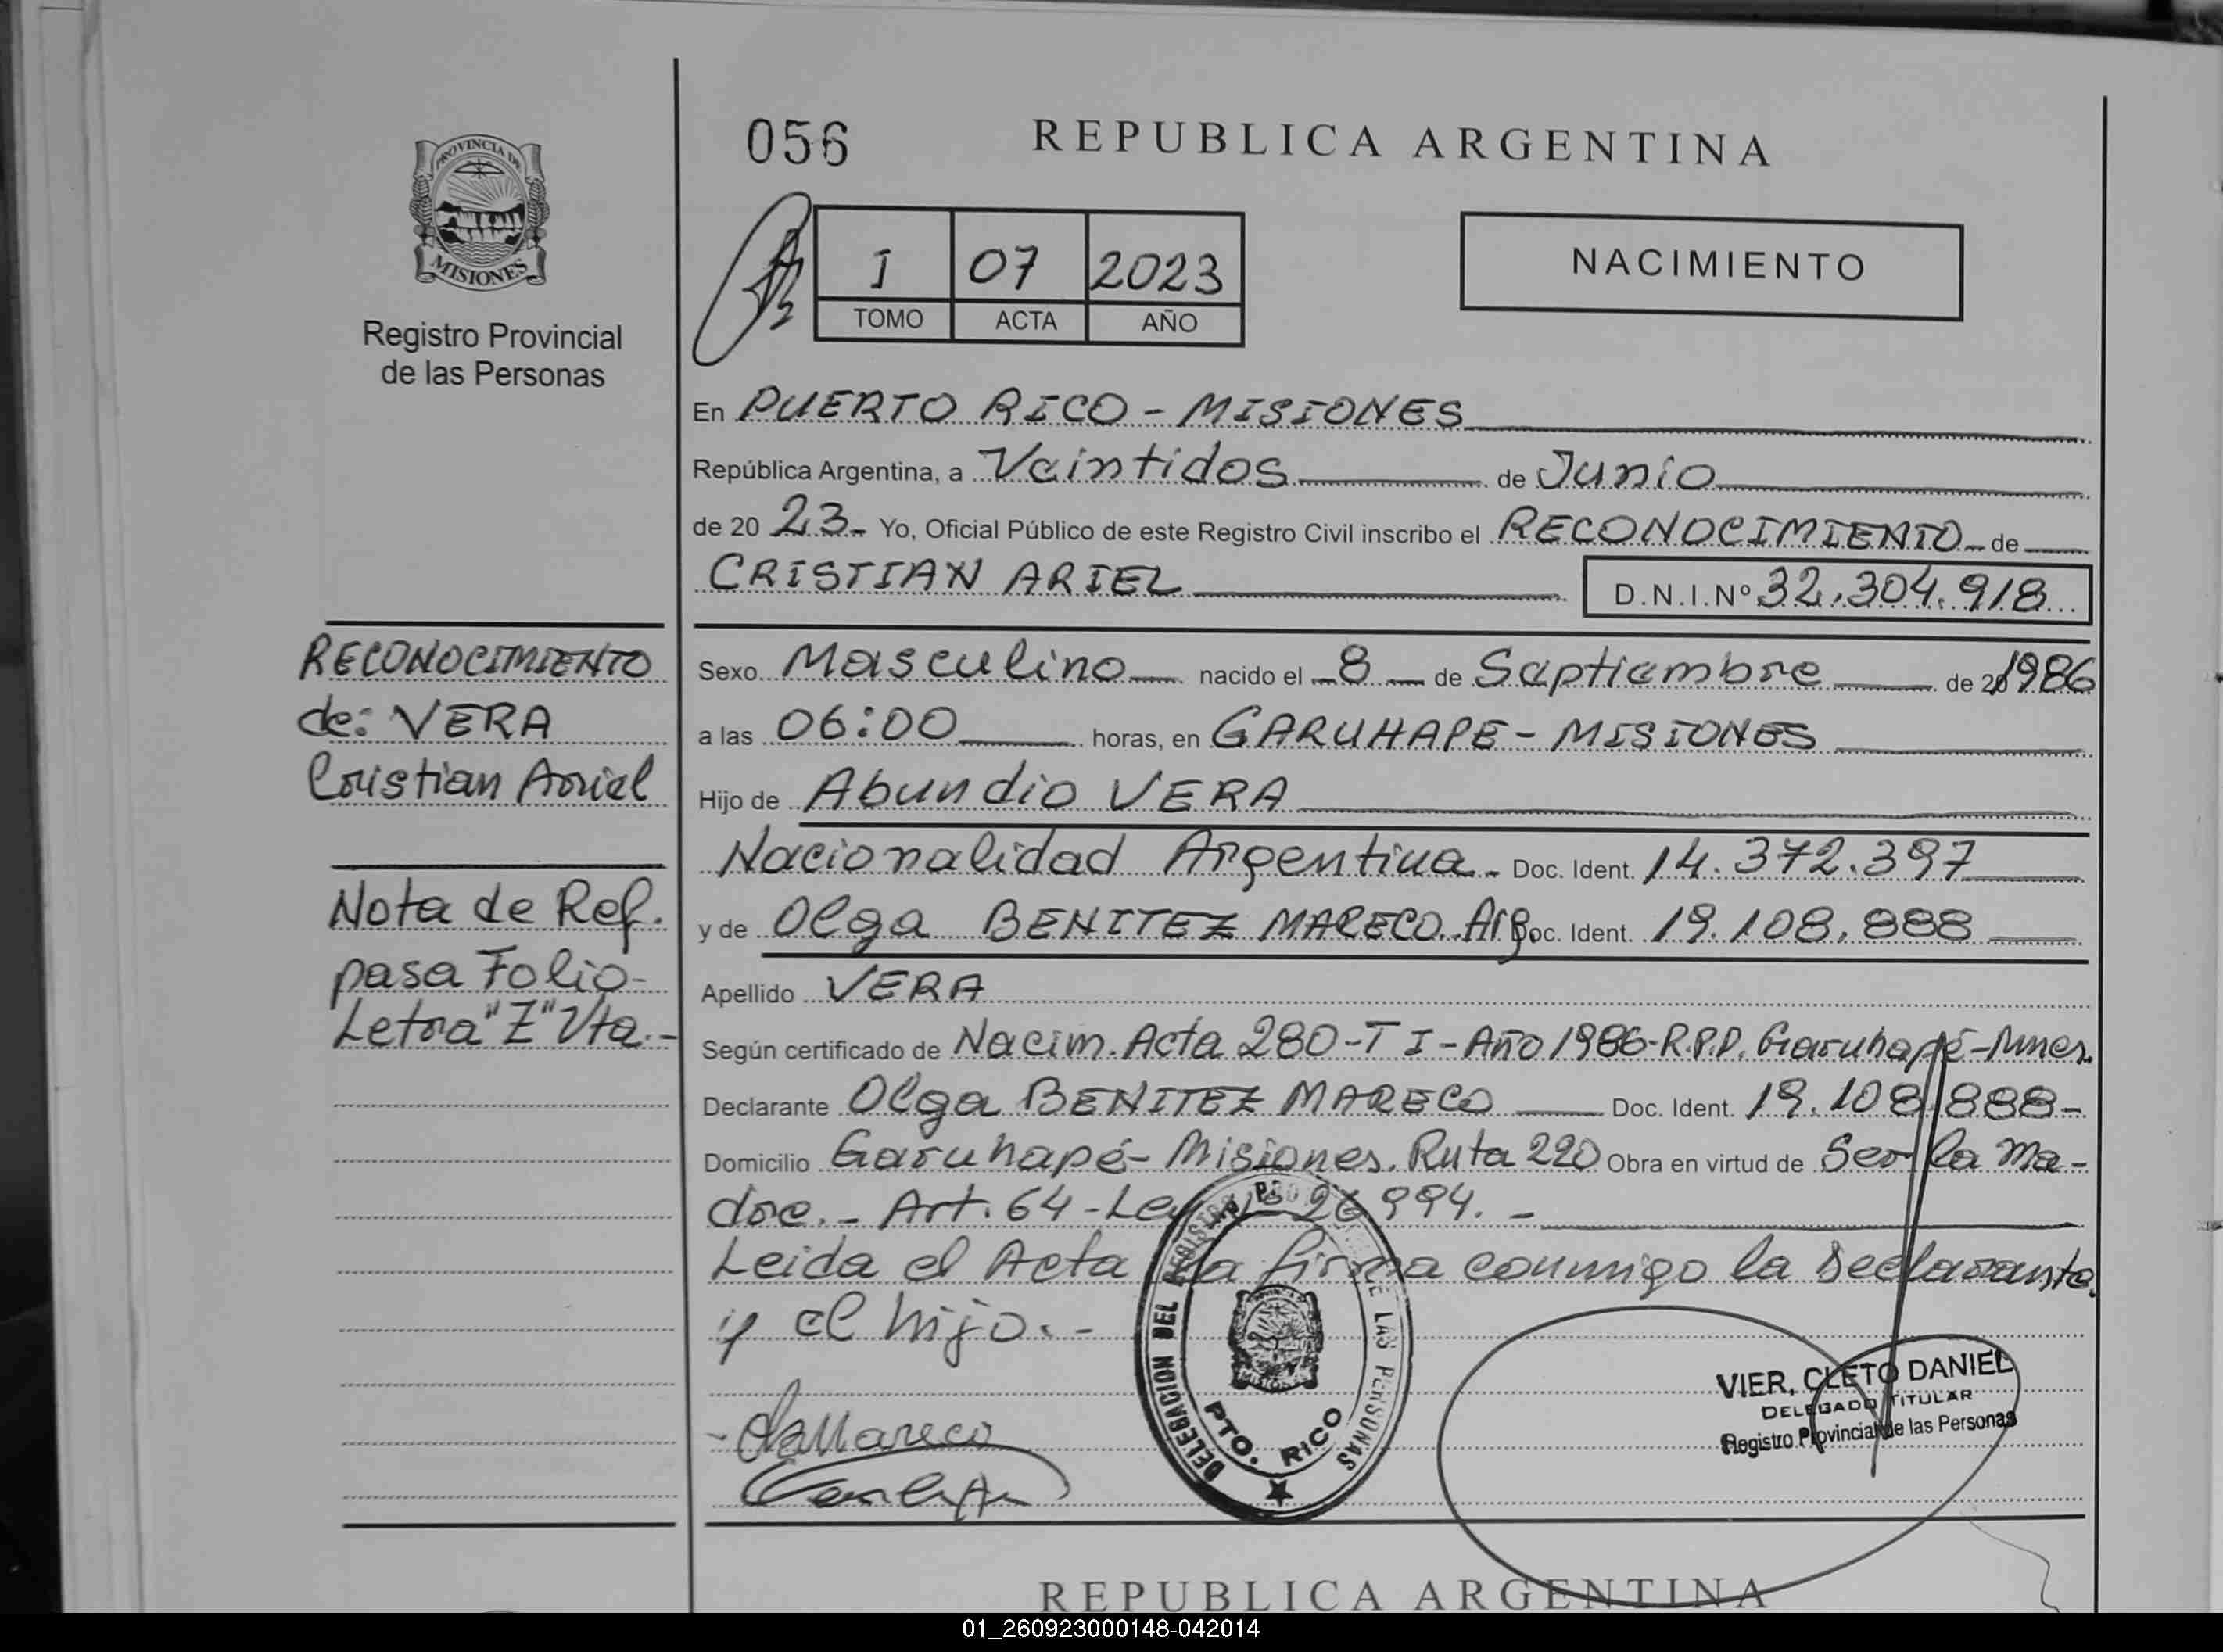 056
REPUBLICA ARGENTINA
PROVINCIA DE
MISIONES
Registro Provincial
de las Personas
I 07 2023
TOMO ACTA AÑO
NACIMIENTO
En PUERTO RICO - MISIONES
República Argentina, a Veintidos de Junio
de 20 23 - Yo, Oficial Público de este Registro Civil inscribo el RECONOCIMIENTO de
CRISTIAN ARIEL D.N.I.Nº 32.304.918
RECONOCIMIENTO
de: VERA
Cristian Ariel
Nota de Ref.
pasa Folio-
Letra "Z" Vta.-
Sexo Masculino nacido el 8 de Septiembre de 20 1986
a las 06:00 horas, en GARUHAPE - MISIONES
Hijo de Abundio VERA
Nacionalidad Argentina. Doc. Ident. 14.372.397
y de Olga BENITEZ MARECO. Arg. Doc. Ident. 19.108.888
Apellido VERA
Según certificado de Nacim. Acta 280 - T I - Año 1986 - R.P.P. Garuhapé - Mnes.
Declarante Olga BENITEZ MARECO Doc. Ident. 19.108.888-
Domicilio Garuhapé - Misiones. Ruta 220 Obra en virtud de Ser la ma-
dre. - Art. 64 - Ley Nº 26994. -
Leida el Acta la firma conmigo la Declarante
y el hijo. -
DELEGACION DEL REGISTRO PROVINCIAL DE LAS PERSONAS
PTO. RICO
VIER, CLETO DANIEL
DELEGADO TITULAR
Registro Provincial de las Personas
REPUBLICA ARGENTINA
01_260923000148-042014